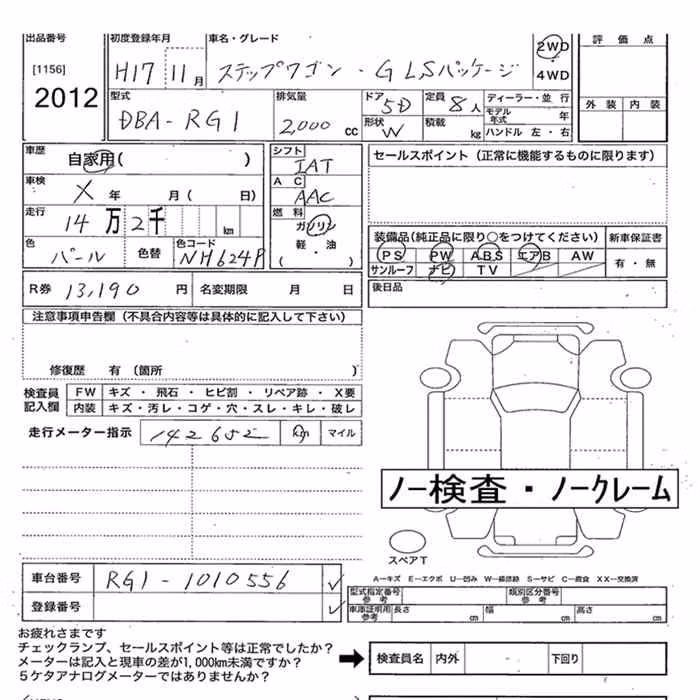 出品番号 初度登録年月 車名・グレード 評価点
[1156] H17 11月 ステップワゴン・G LSパッケージ 2WD 4WD
2012 型式 排気量 ドア 5D 定員 8人 ディーラー・並行 外装 内装
DBA-RG1 2,000cc 形状 W 積載 kg モデル年式 年
ハンドル 左・右
車歴 自家用( ) シフト IAT セールスポイント(正常に機能するものに限ります)
車検 X 年 月( 日) AC AAC
走行 14万2千 km 燃料 ガソリン 軽・油 ( )
装備品(純正品に限り○をつけてください) 新車保証書
色 パール 色替 色コード NH624P PS PW ABS エアB AW 有・無
サンルーフ ナビ TV
R券 13,190円 名変期限 月 日 後日品
注意事項申告欄(不具合内容等は具体的に記入して下さい)
修復歴 有(箇所 )
検査員記入欄 FW キズ・飛石・ヒビ割・リペア跡・X要
内装 キズ・汚レ・コゲ・穴・スレ・キレ・破レ
走行メーター指示 142652 km マイル
ノー検査・ノークレーム
スペアT
車台番号 RG1-1010556
A-キズ E-エクボ U-凹み W-補修跡 S-サビ C-腐食 XX-交換済
登録番号 型式指定番号 参考 類別区分番号 参考
車庫証明用 参考 長さ cm 幅 cm 高さ cm
お疲れさまです
チェックランプ、セールスポイント等は正常でしたか?
メーターは記入と現車の差が1,000km未満ですか?
5ケタアナログメーターではありませんか?
検査員名 内外 下回り